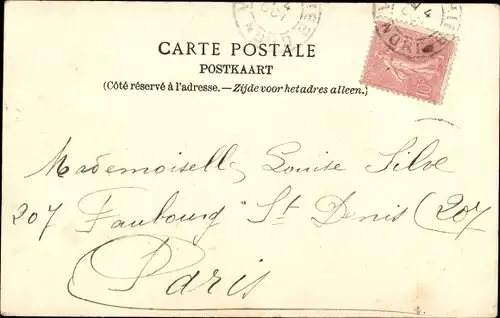 CARTE POSTALE
POSTKAART
(Côté réservé à l'adresse. — Zijde voor het adres alleen.)
Mademoiselle Louise Silve
207 Faubourg St Denis (207
Paris
10
NORD